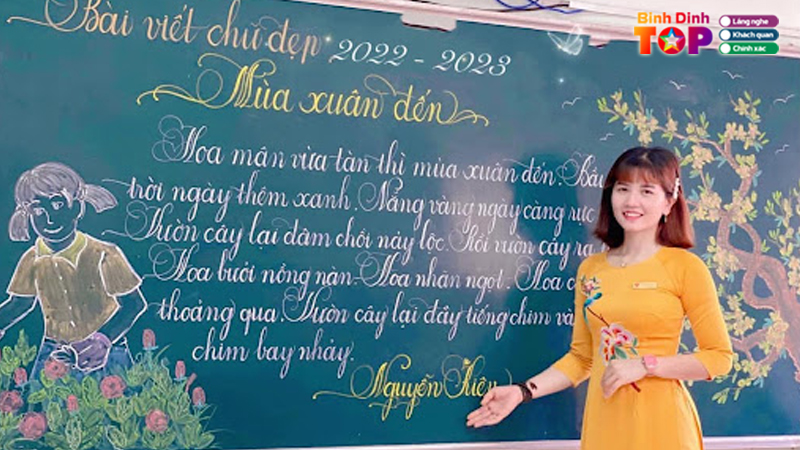 Bình Định
TOP
Lắng nghe
Khách quan
Chính xác
Bài viết chữ đẹp 2022 - 2023
Mùa xuân đến
Hoa mận vừa tàn thì mùa xuân đến. Bầu
trời ngày thêm xanh. Nắng vàng ngày càng rực
Vườn cây lại đâm chồi nảy lộc. Rồi vườn cây ra
Hoa bưởi nồng nàn. Hoa nhãn ngọt. Hoa
thoảng qua. Vườn cây lại đầy tiếng chim và
chim bay nhảy.
Nguyễn Kiên